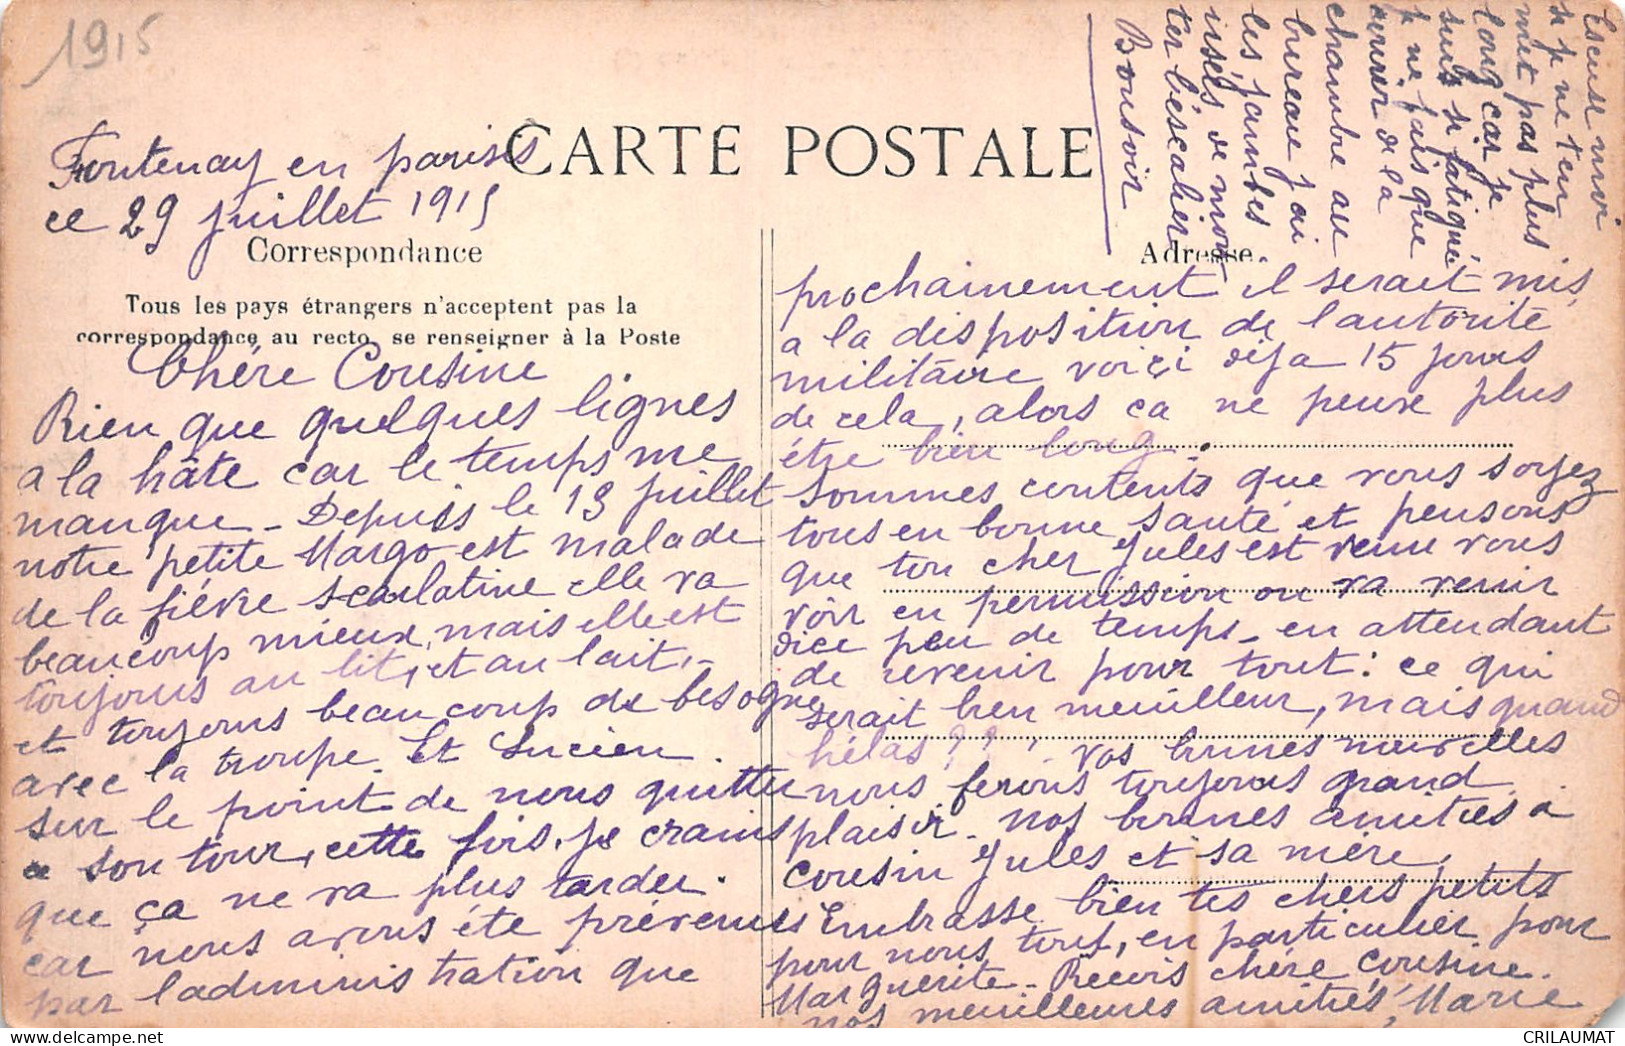 1915
Fontenay en parisis
ce 29 juillet 1915
CARTE POSTALE
Correspondance
Tous les pays étrangers n'acceptent pas la
correspondance au recto, se renseigner à la Poste
Adresse
Chére Cousine
Rien que quelques lignes
a la hâte car le temps me
manque - Depuis le 19 juillet
notre petite Margo est malade
de la fiévre scarlatine elle va
beaucoup mieux, mais elle est
toujours au lit, et au lait, -
et toujours beaucoup de besogne
avec la troupe. Et Lucien
sur le point de nous quitter
a son tour, cette fois, je crains
que ça ne va plus tarder.
car nous avons été prévenus
par l'administration que
prochainement il serait mis,
a la disposition de l'autorité
militaire voiçi déja 15 jours
de cela, alors ca ne peux plus
étre bien long.
sommes contents que vous soyez
tous en bonne santé et pensons
que ton cher Jules est venu vous
voir en permission ou va venir
dice peu de temps - en attendant
de revenir pour tout : ce qui
serait bien meuilleur, mais quand
hélas ? ? ! Vos bonnes nouvelles
nous ferons toujours grand
plaisir - Nos bonnes amitiés a
cousin Jules et sa mère,
Embrasse bien tes chers petits
pour nous tous, en particulier pour
Marguerite - Recois chére Cousine.
nos meuilleures amitiés, Marie
Escuse moi
si je ne t'en
met pas plus
long car je
suis si fatiguée
je ne fais que
courir de la
chambre au
bureau j'ai
les jambes
usées de mon
ter l'éscalier
Bonsoir
CRILAUMAT